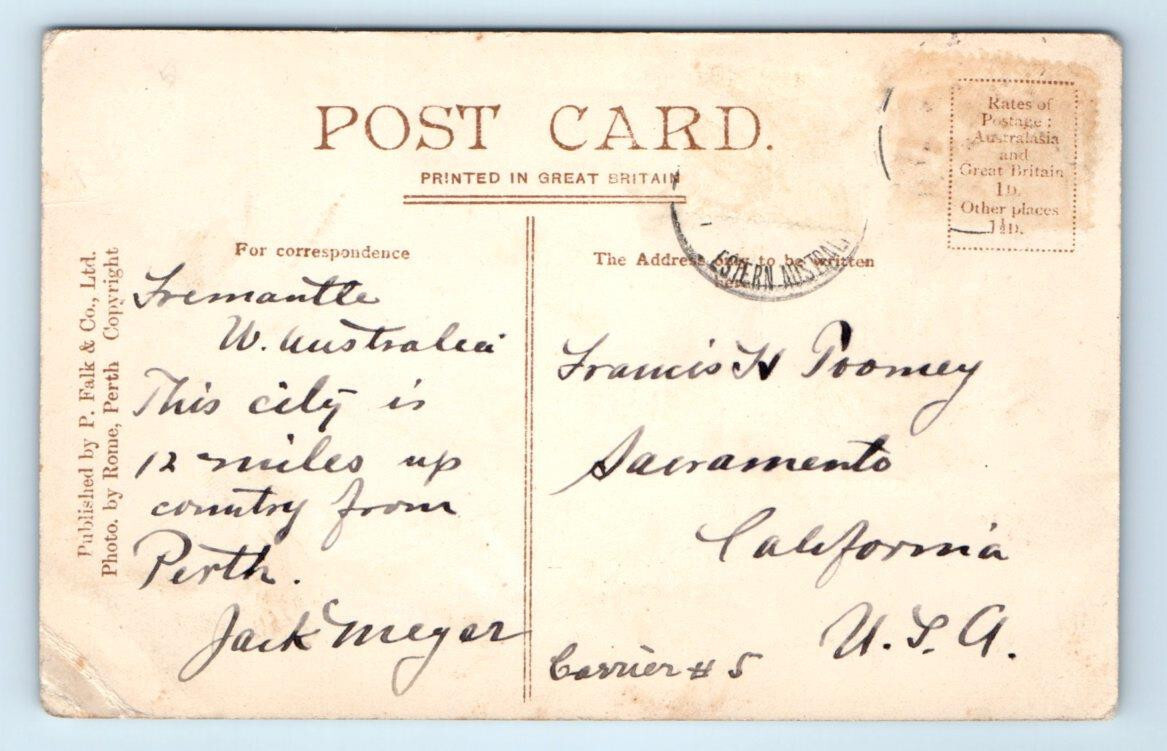 POST CARD.
PRINTED IN GREAT BRITAIN
Rates of
Postage:
Australasia
and
Great Britain
1D.
Other places
1½D.
For correspondence
The Address only to be written
here
ESTERN AUSTRAL
Published by P. Falk & Co., Ltd.
Photo. by Rome, Perth Copyright
Fremantle
W. Australia
This city is
12 miles up
country from
Perth.
Jack Meyer
Francis H Toomey
Sacramento
California
U.S.A.
Carrier # 5